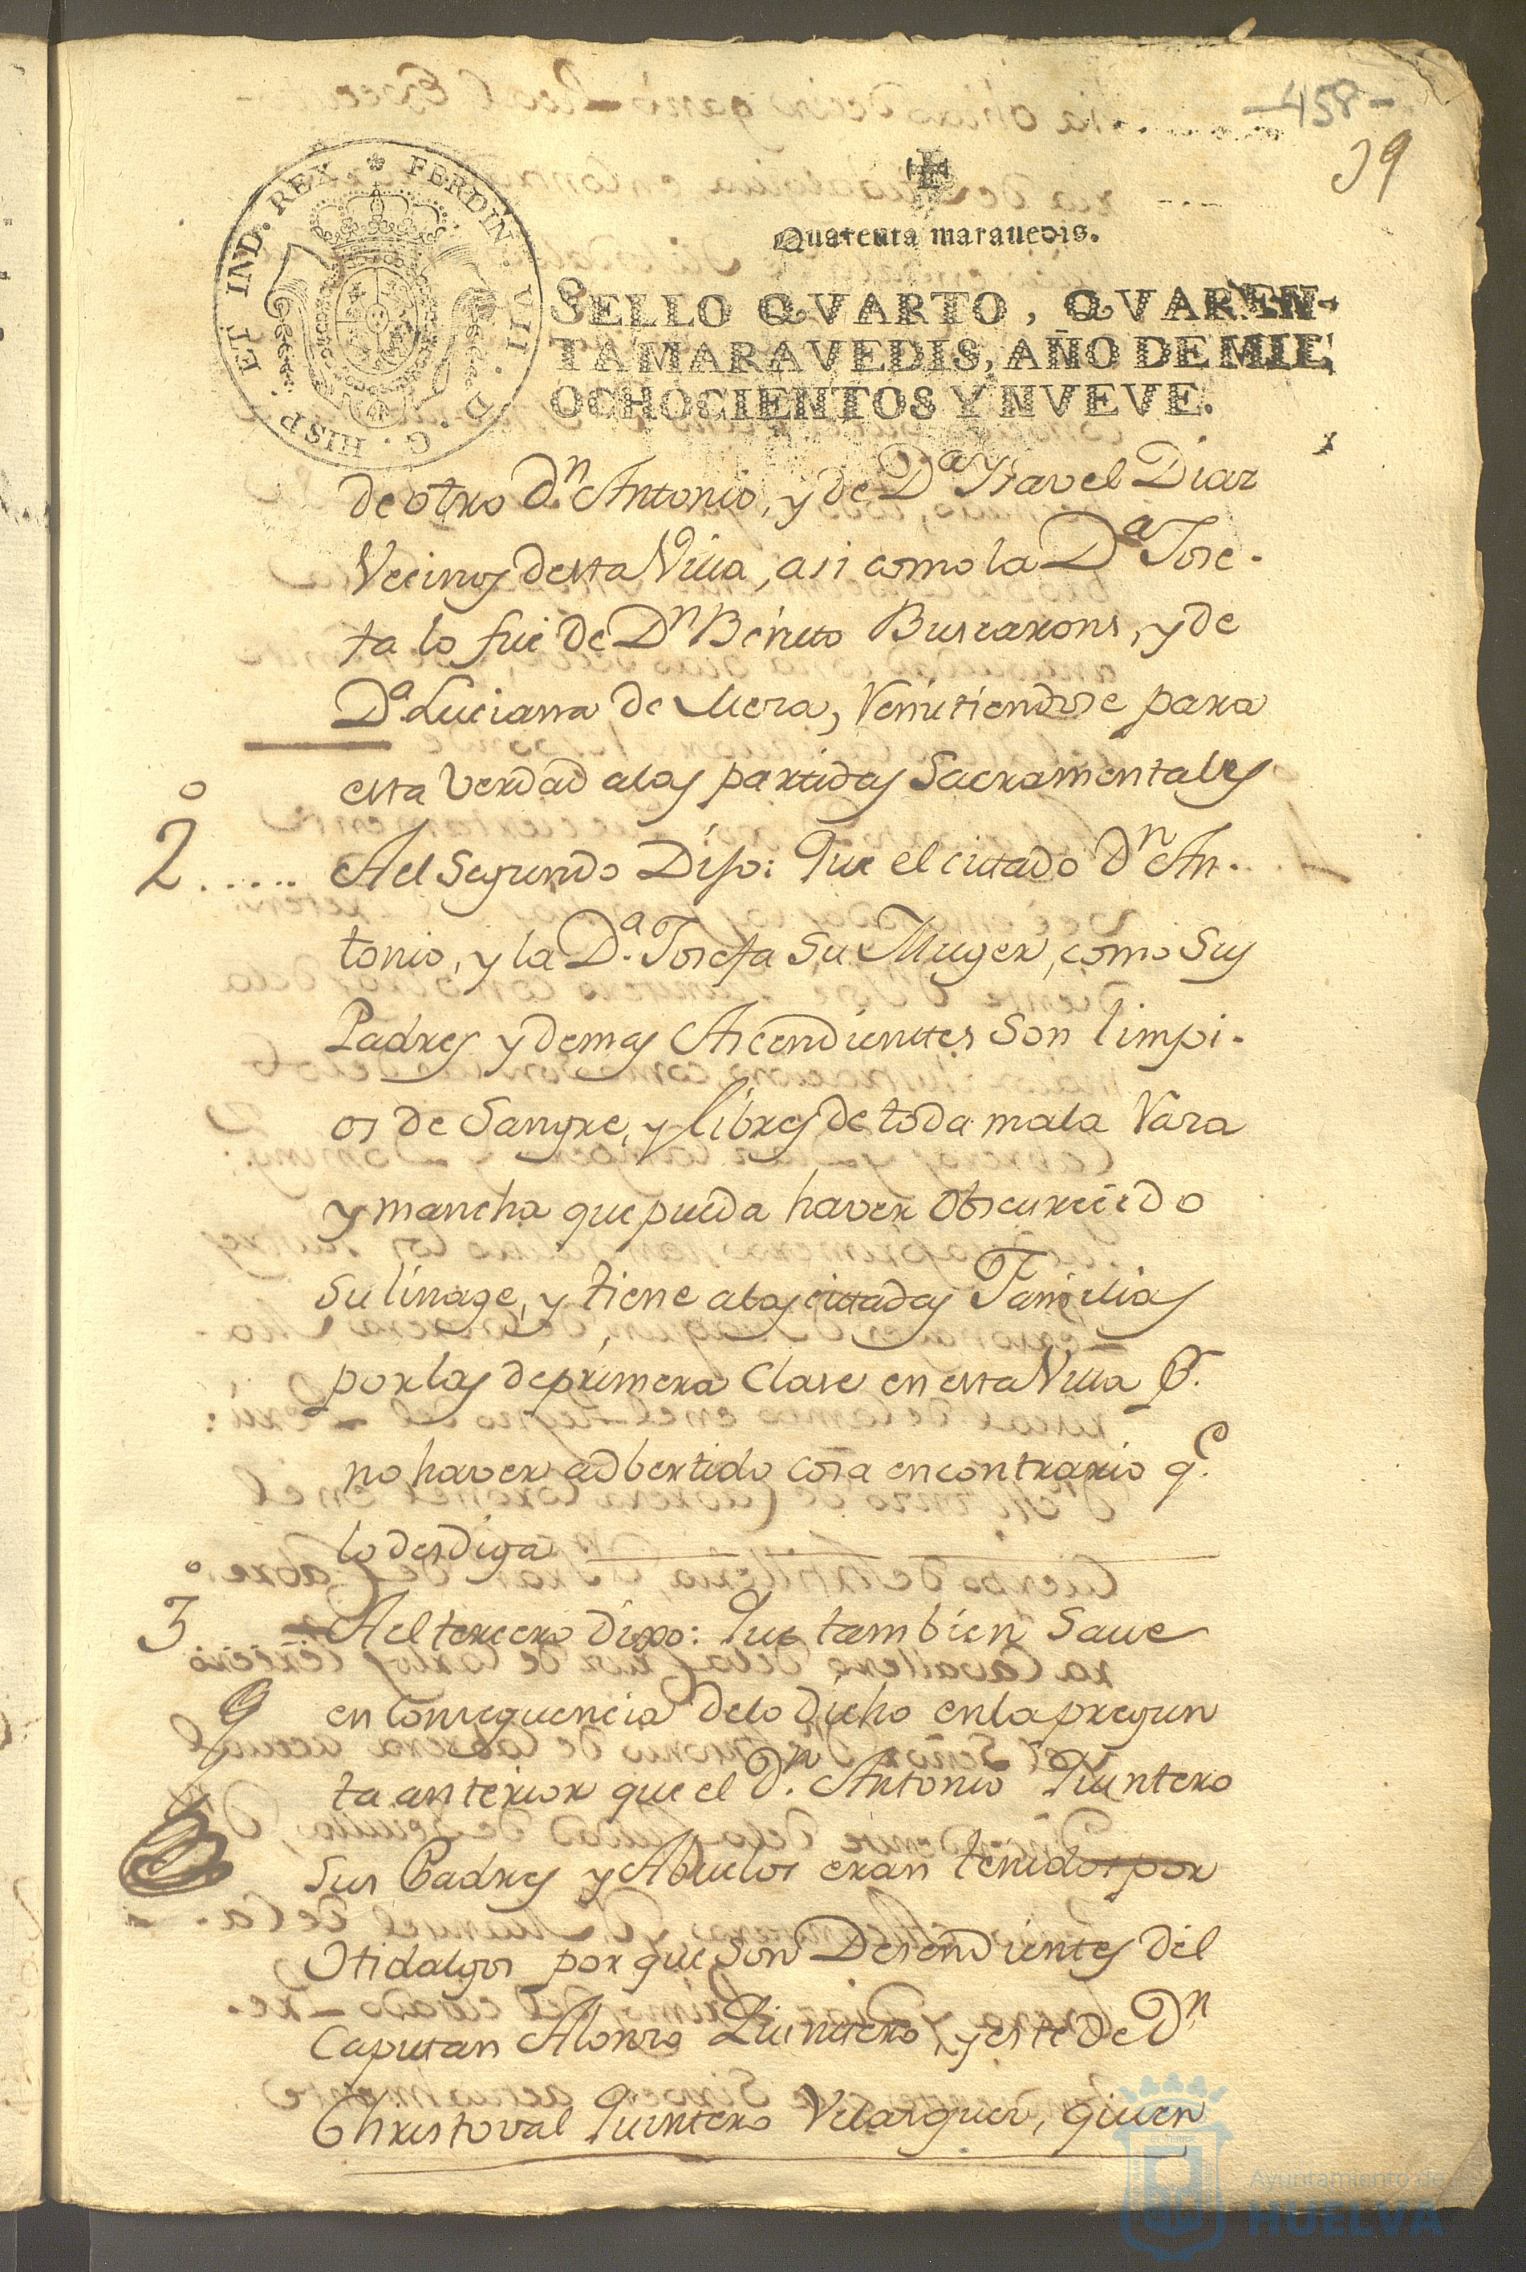 -458-
39
HISP. ET IND. REX * FERDIN. VII. D. G.
Quarenta marauedis.
SELLO QVARTO, QVAREN-
TA MARAVEDIS, AÑO DE MIL
OCHOCIENTOS Y NVEVE.
de otro Dn Antonio, y de Da Ysavel Diaz
Vecinos desta Villa, asi como la Da Jose-
fa lo fué de Dn Benito Buscarons, y de
Da Luciana de Mera, Remitiendose para
esta verdad a las partidas Sacramentales
2o..... A el Segundo Dijo: Que el citado Dn An-
tonio, y la Da. Josefa su Muger, como sus
Padres y demas Ascendientes son limpi-
os de Sangre, y libres de toda mala Raza
y mancha que pueda haver obscurecido
su linage, y tiene a las citadas Familias
por las de primera Clase en esta Villa Pr.
no haver adbertido cosa en contrario qe.
lo desdiga
3o A el tercero dixo: Que tambien Save
en consequencia de lo Dicho en la pregun
ta anterior que el Dn. Antonio Quintero
sus Padres y Abuelos eran tenidos por
Hidalgos por que son Desendientes del
Capitan Alonso Quintero, y este de Dn
Christoval Quintero Velasquez, quien
Ayuntamiento de
HUELVA